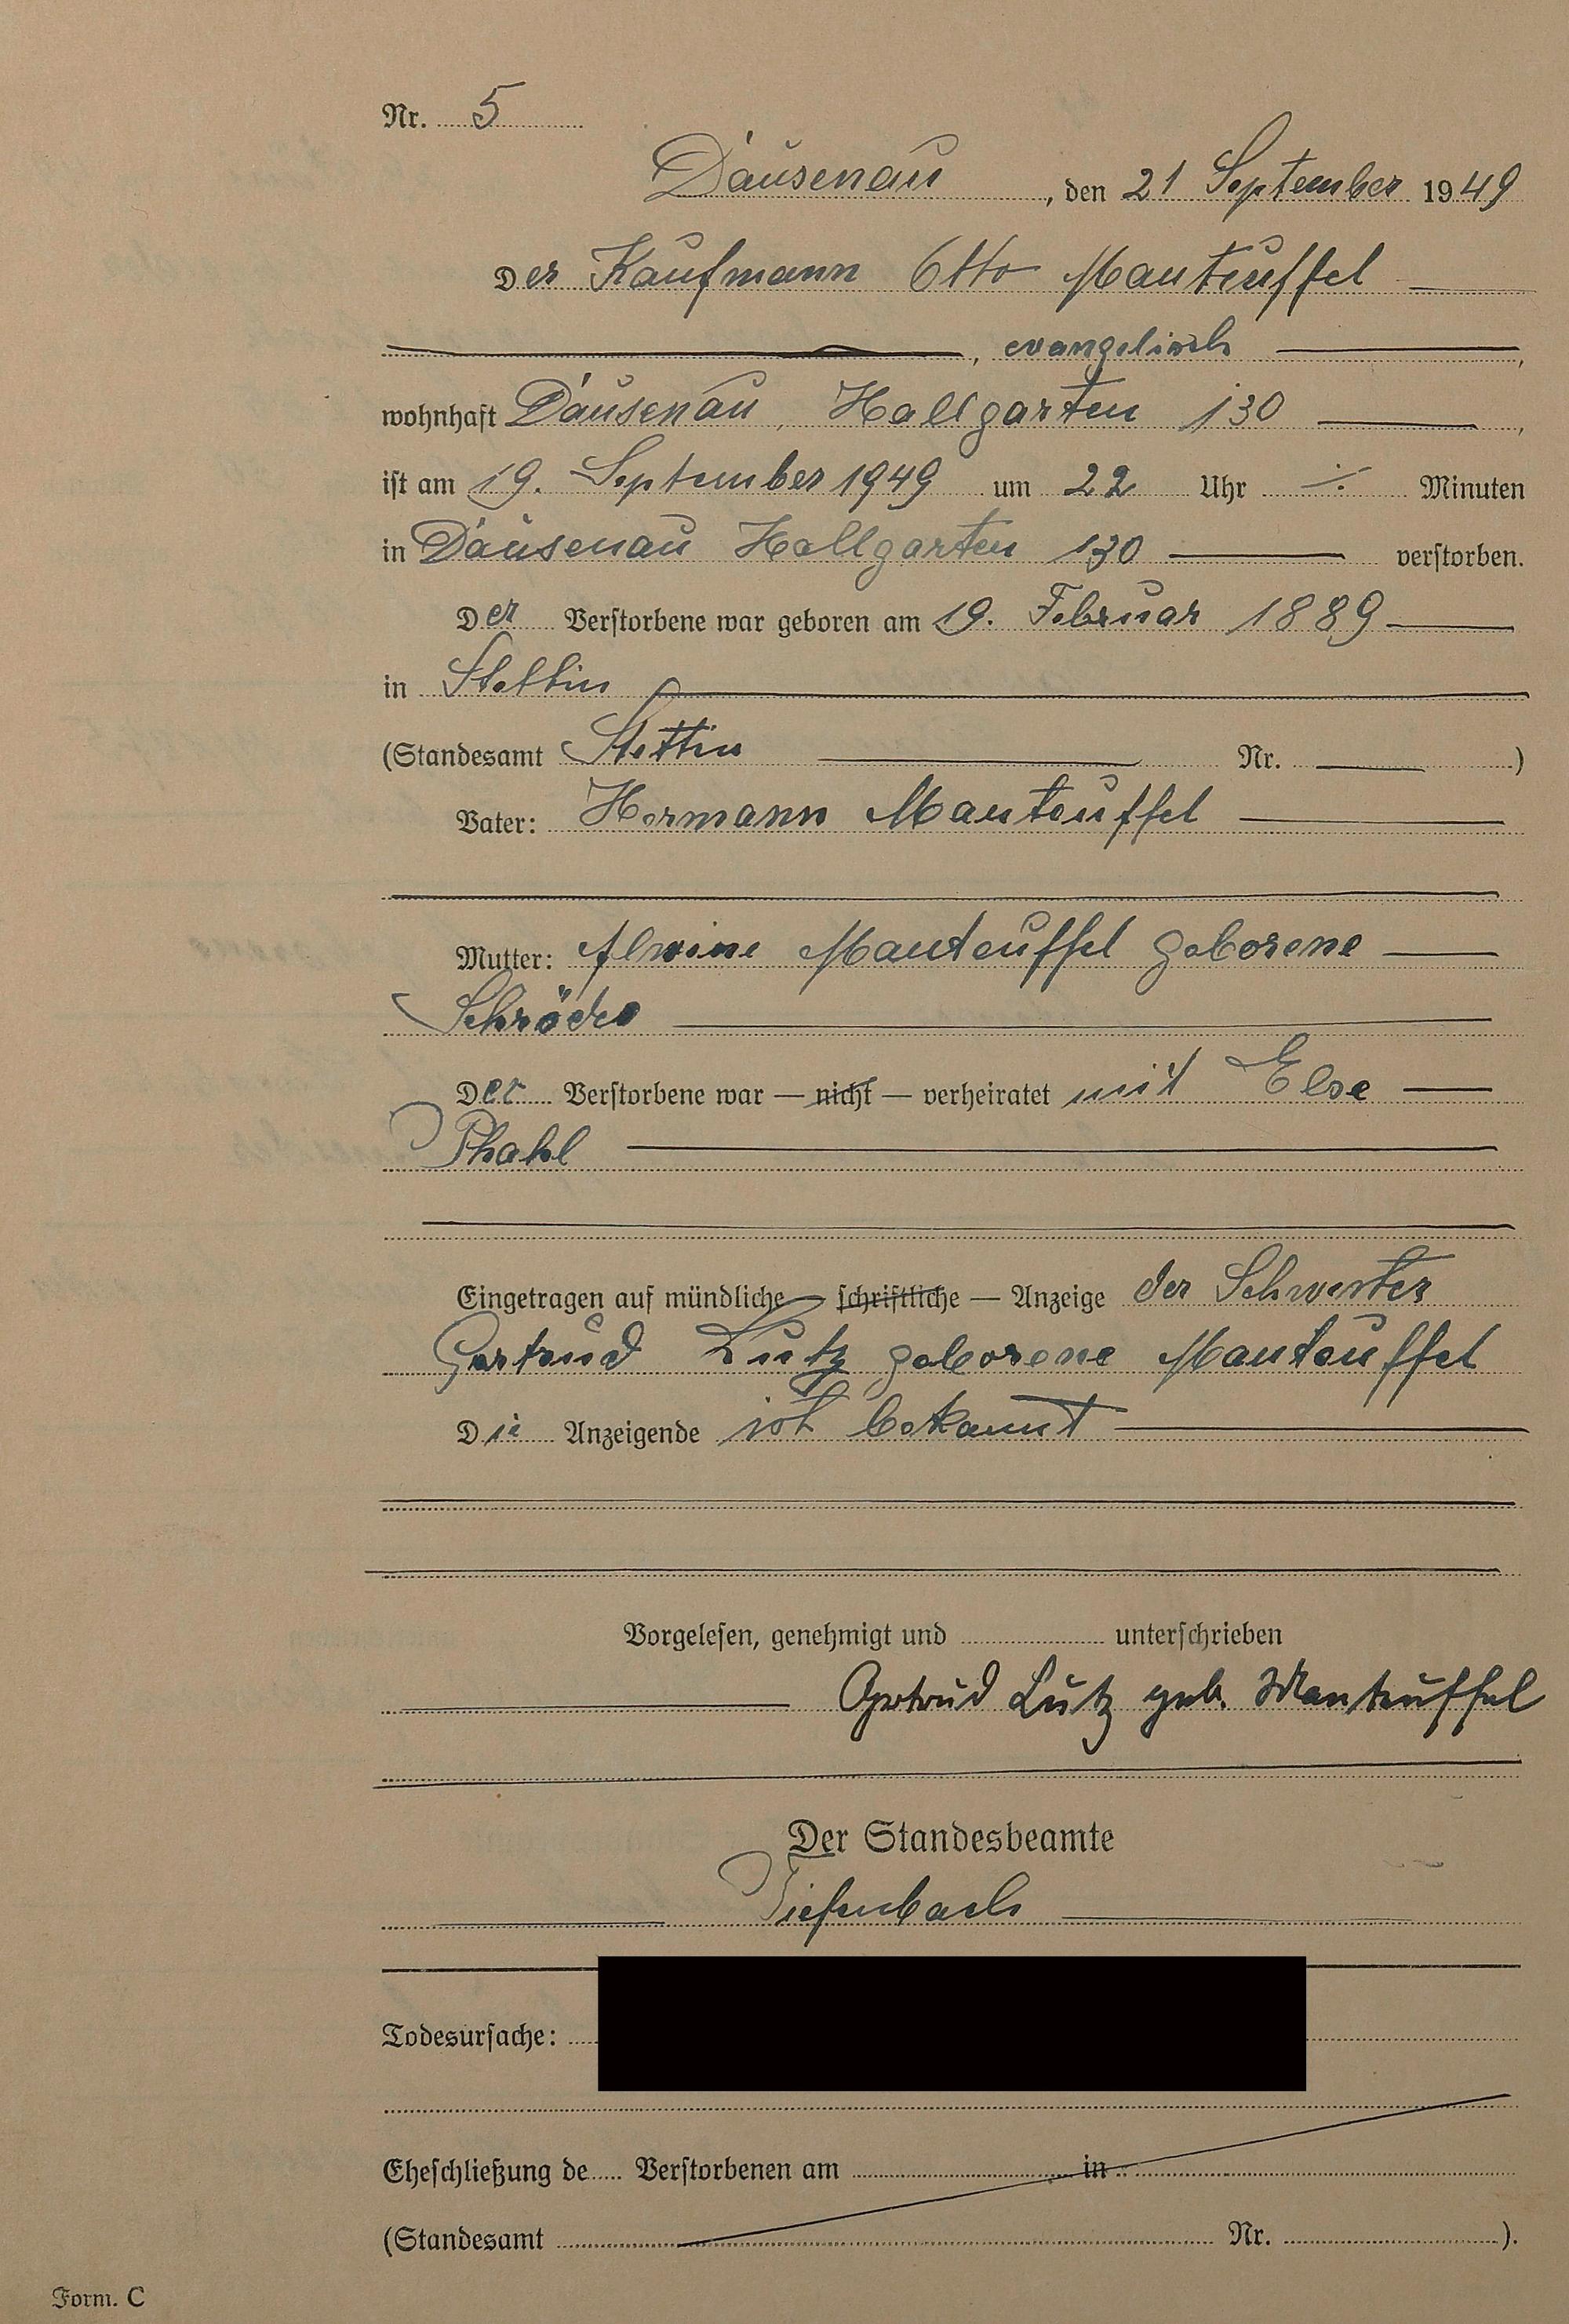 Nr. 5
Dausenau, den 21 September 1949
Der Kaufmann Otto Manteuffel
, evangelisch,
wohnhaft Dausenau, Hallgarten 130,
ist am 19. September 1949 um 22 Uhr ./. Minuten
in Dausenau Hallgarten 130 verstorben.
Der Verstorbene war geboren am 19. Februar 1889
in Stettin
(Standesamt Stettin Nr. )
Vater: Hermann Manteuffel
Mutter: Alwine Manteuffel geborene
Schröder
Der Verstorbene war — nicht — verheiratet mit Else
Phahl
Eingetragen auf mündliche — schriftliche — Anzeige der Schwester
Gertrud Lutz geborene Manteuffel
Die Anzeigende ist bekannt
Vorgelesen, genehmigt und unterschrieben
Gertrud Lutz geb. Manteuffel
Der Standesbeamte
Tiefenbach
Todesursache:
Eheschließung de Verstorbenen am in
(Standesamt Nr. ).
Form. C